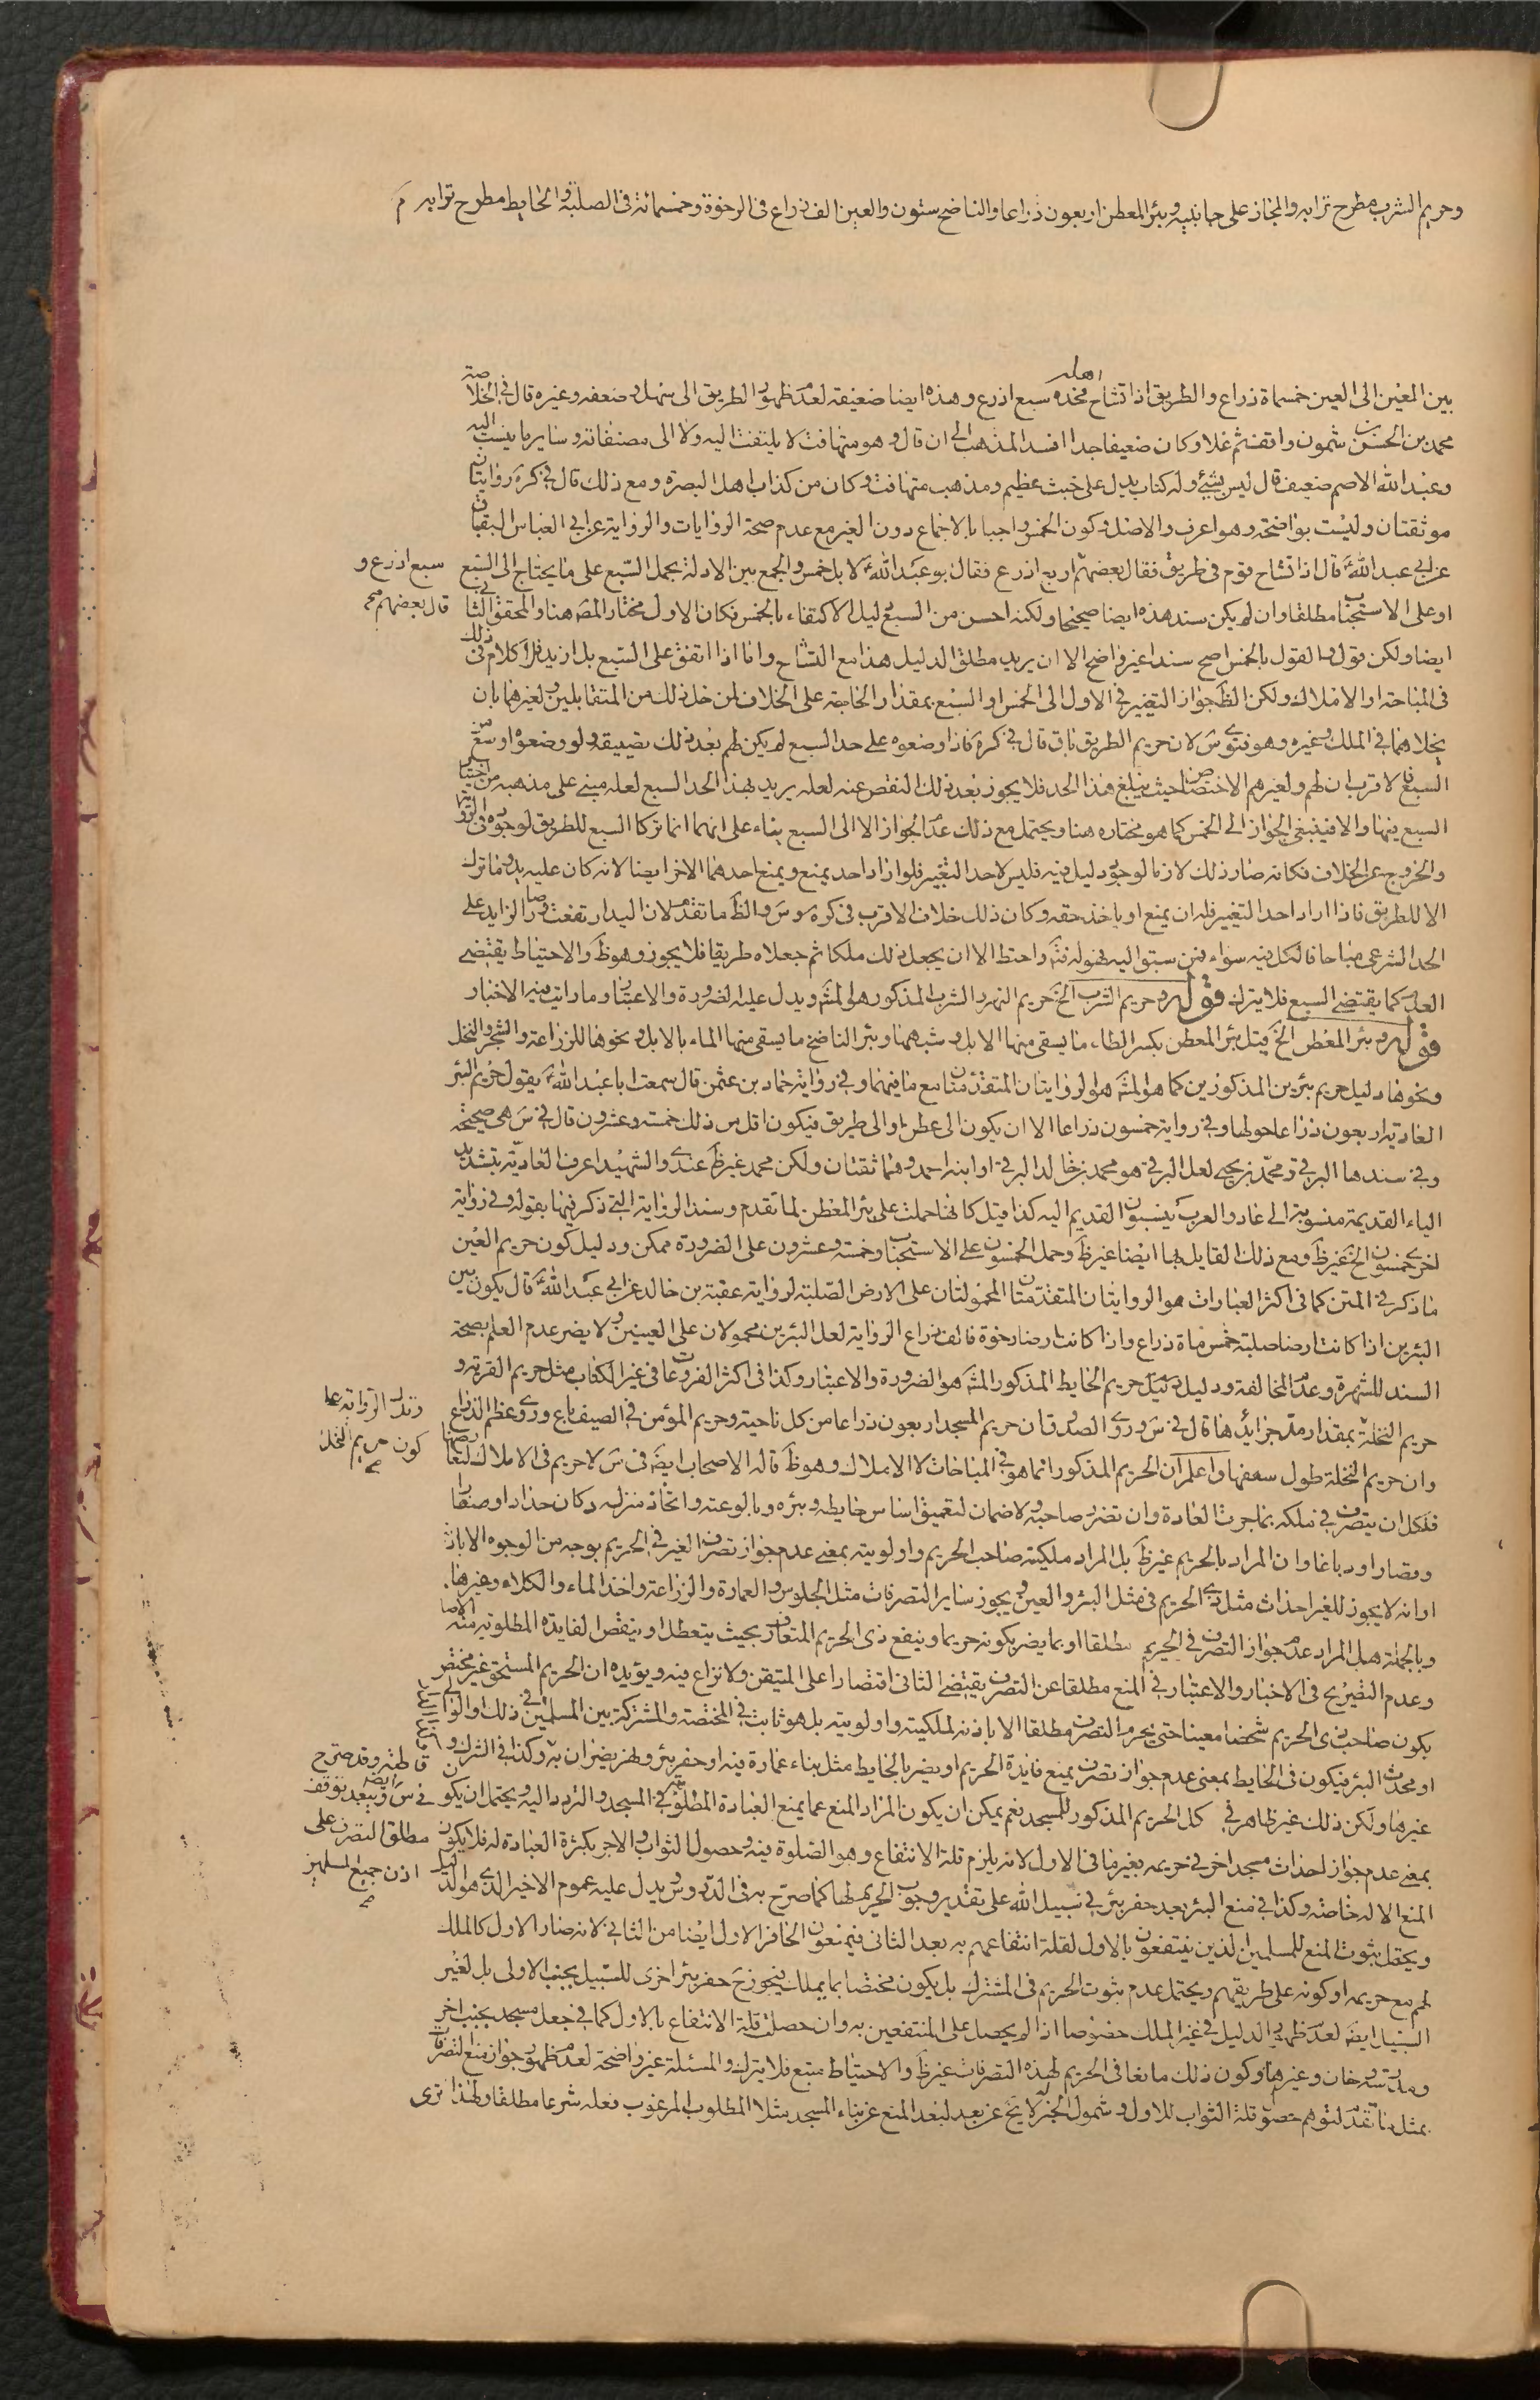 وحريم الشرب مطرح ترابه والمجاز على جانبيه وبئر المعطن اربعون ذراعا والناضح ستون والعين الف ذراع في الرخوة وخمسمائة في الصلبة والحايط مطرح ترابه
بين العين الى العين خمسماة ذراع والطريق اذا تشاح عليه اهله فحده سبع اذرع وهذه ايضا ضعيفة لعدم ظهور الطريق الى سهل وضعفه وغيره قال في الخلاصة
محمد بن الحسن بن شمون واقف ثم غلا وكان ضعيفا جدا فاسد المذهب الى ان قال وهو متهافت لا يلتفت اليه ولا الى مصنفاته وساير ما ينسب اليه
وعبد الله الاصم ضعيف قال ليس بشيء وله كتاب يدل على خبث عظيم ومذهب متهافت وكان من كذابة اهل البصرة ومع ذلك قال في كره روايتان
موثقتان وليست بواضحة وهو اعرف والاصل وكون الخمس واجبا بالاجماع دون الغير مع عدم صحة الروايات والرواية عن ابي العباس البقباق
عن ابي عبد الله ع قال اذا تشاح قوم في طريق فقال بعضهم اربع اذرع فقال ابو عبد الله ع لا بل خمس والجمع بين الادلة بحمل السبع على ما يحتاج الى السبع
سبع اذرع و
قال بعضهم صح
او على الاستحباب مطلقا وان لم يكن سند هذه ايضا صحيحا ولكنه احسن من السبع دليل الاكتفاء بالخمس فكان الاول مختار المصه هنا والمحقق الثاني
ايضا ولكن قول والقول بالخمس اصح سندا غير واضح الا ان يريد مطلق الدليل هذا مع التشاح واما اذا اتفق على السبع بل ازيد فلا كلام في ذلك
في المباحة او الاملاك ولكن الظ جواز التغيير في الاول الى الخمس او السبع بمقدار الحاجة على الخلاف لمن خل ذلك من المتقابلين ولغيرهما بان
يخلاهما في الملك وغيره وهو فتوى س لان حريم الطريق باق قال في كره فاذا وضعوه على حد السبع لم يكن لهم بعد ذلك تضييقه ولو وضعوه اوسع من
السبع فالاقرب ان لهم ولغيرهم الاختصاص حيث يبلغ هذا الحد فلا يجوز بعد ذلك النقص عنه لعله يريد بهذا الحد السبع لعله مبني على مذهبه من اختيار
السبع فيها والا فينبغي الجواز الى الخمس كما هو مختاره هنا ويحتمل مع ذلك عدم الجواز الا الى السبع بناء على انهما انما تركا السبع للطريق لوجوده في الرواية
والخروج عن الخلاف فكانه صار ذلك لازما لوجود دليل فيه فليس لاحد التغيير فلو اراد احد يمنع ويمنع احدهما الاخر ايضا لانه كان عليه يد وما ترك
الا للطريق فاذا اراد احد التغيير فله ان يمنع او ياخذ حقه وكان ذلك خلاف الاقرب في كره وس والظ ما تقدم لان اليد ارتفعت وصار الزايد على
الحد الشرعي مباحا فالكل فيه سواء فمن سبق اليه فهو له فتدبر واحتط الا ان يجعل ذلك ملكا ثم جعلاه طريقا فلا يجوز وهو ظ والاحتياط يقتضي
العدول كما يقتضي السبع فلا يترك قوله وحريم الشرب الخ حريم النهر والشرب المذكور هو المشه ويدل عليه الضرورة والاعتبار وما رايت فيه الاخبار
قوله وبئر المعطن الخ قيل بئر المعطن بكسر الطاء ما يسقى منها الابل وشبهها وبئر الناضح ما يسقى منها الماء بالابل ونحوها للزراعة والشجر والنخل
ونحوها دليل حريم بئرين المذكورين كما هو المشه هو الروايتان المتقدمتان مع ما فيهما وفي رواية حماد بن عثمن قال سمعت ابا عبد الله ع يقول حريم البئر
العادية اربعون ذراعا حولها وفي رواية خمسون ذراعا الا ان يكون الى عطن او الى طريق فيكون اقل من ذلك خمسة وعشرون قال في س هي صحيحة
وفي سندها البرقي ومحمد بن يحيى لعل البرقي هو محمد بن خالد البرقي او ابنه احمد وهما ثقتان ولكن محمد غير ظ عندي والشهيد اعرف العادية بتشديد
الياء القديمة منسوبة الى عاد والعرب ينسبون القديم اليه كذا قيل كانها حملت على بئر المعطن لما تقدم وسند الرواية التي ذكر فيها بقوله وفي رواية
اخرى خمسون الخ غير ظ ومع ذلك القايل بها ايضا غير ظ وحمل الخمسون على الاستحباب وخمسة وعشرون على الضرورة ممكن ودليل كون حريم العين
ما ذكر في المتن كما في اكثر العبارات هو الروايتان المتقدمتان المحمولتان على الارض الصلبة لرواية عقبة بن خالد عن ابي عبد الله ع قال يكون بين
البئرين اذا كانت ارضا صلبة خمس ماة ذراع واذا كانت ارضا رخوة فالف ذراع الرواية لعل البئرين محمولان على العينين ولا يضر عدم العلم بصحة
السند للشهرة وعدم المخالفة ودليل حريم الحايط المذكور المشه هو الضرورة والاعتبار وكذا في اكثر الفروعات في غير الكتاب مثل حريم القرية و
حريم النخلة بمقدار مد جرايدها قال في س وروى الصدوق ان حريم المسجد اربعون ذراعا من كل ناحية وحريم المؤمن في الصيف باع وروي عظم الذراع
وتدل الرواية على
كون حريم النخلة
صح
وان حريم النخلة طول سعفها واعلم ان الحريم المذكور انما هو في المباحات لا الاملاك وهو ظ قاله الاصحاب ايضه في س لا حريم في الاملاك لتعارضها
فلكل ان يتصرف في ملكه بما جرت العادة وان تضرر صاحبه ولا ضمان لتعميق اساس حايطه وبئره وبالوعته واتخاذ منزله دكان حداد او صفار
وقصار او دباغا وان المراد بالحريم غير ظ بل المراد ملكية صاحب الحريم واولويته بمعنى عدم جواز تصرف الغير في الحريم بوجه من الوجوه الا باذنه
او انه لا يجوز للغير احداث مثل ذي الحريم في مثل البئر والعين ويجوز ساير التصرفات مثل الجلوس والعمارة والزراعة واخذ الماء والكلاء وغيرها
وبالجملة هل المراد عدم جواز التصرف في الحريم مطلقا او بما يضر بكونه حريما وينفع ذي الحريم المتعارف بحيث يتعطل او ينقص الفايدة المطلوبة منه الاصل
وعدم التصريح في الاخبار والاعتبار في المنع مطلقا عن التصرف يقتضي الثاني اقتصارا على المتيقن ولا نزاع فيه ويؤيده ان الحريم المستحق غير مختص
يكون صاحب ذي الحريم شخصا معينا حتى يحرم التصرف مطلقا الا باذنه لملكيته واولويته بل هو ثابت في المختصة والمشتركة بين المسلمين في ذلك والواقف
او محدث البئر فيكون في الحايط بمعنى عدم جواز تصرف يمنع فايدة الحريم او يضر بالحايط مثل بناء عمارة فيه او حفر بئر ونهر يضران به وكذا في الشرب و
غيرها ولكن ذلك غير ظاهر في كل الحريم المذكور للمسجد نعم يمكن ان يكون المراد المنع عما يمنع العبادة المطلوبة في المسجد والتردد اليه ويحتمل ان يكون
وقد صرح
في س ايضه ويبعد توقف
مطلق التصرف على
اذن جميع المسلمين
صح
بمعنى عدم جواز احداث مسجد اخر في حريمه بغير ما في الاول لانه يلزم قلة الانتفاع وهو الصلوة فيه وحصول الثواب والاجر بكثرة العبادة له فلا يكون
المنع الا له خاصة وكذا في منع البئر بعد حفر بئر في سبيل الله على تقدير وجوب الحريم لها كما صرح به في الدروس ويدل عليه عموم الاخير الذي هو الدليل
ويحتمل ثبوت المنع للمسلمين الذين ينتفعون بالاول لقلة انتفاعهم به بعد الثاني فيمنعون الحافر الاول ايضا من الثاني لانه صار الاول كالملك
لهم مع حريمه او كونه على طريقهم ويحتمل عدم ثبوت الحريم في المشترك بل يكون مختصا بما يملك فيجوز ح حفر بئر اخرى للسبيل بجنب الاولى بل لغير
السبيل ايضه لعدم ظهور الدليل في غير الملك خصوصا اذا لم يحصل على المنتفعين به وان حصلت قلة الانتفاع بالاول كما في جعل مسجد بجنب اخر
ومدرسة وخان وغيرها وكون ذلك مانعا في الحريم لهذه التصرفات غير ظ والاحتياط متبع فلا يترك والمسئلة غير واضحة لعدم ظهور جواز منع التصرفات
بمثل ما تقدم لتوهم حصول قلة الثواب للاول وشمول الخبر لا يخ عن بعد لبعد المنع عن بناء المسجد مثلا المطلوب المرغوب فعله شرعا مطلقا ولهذا ترى